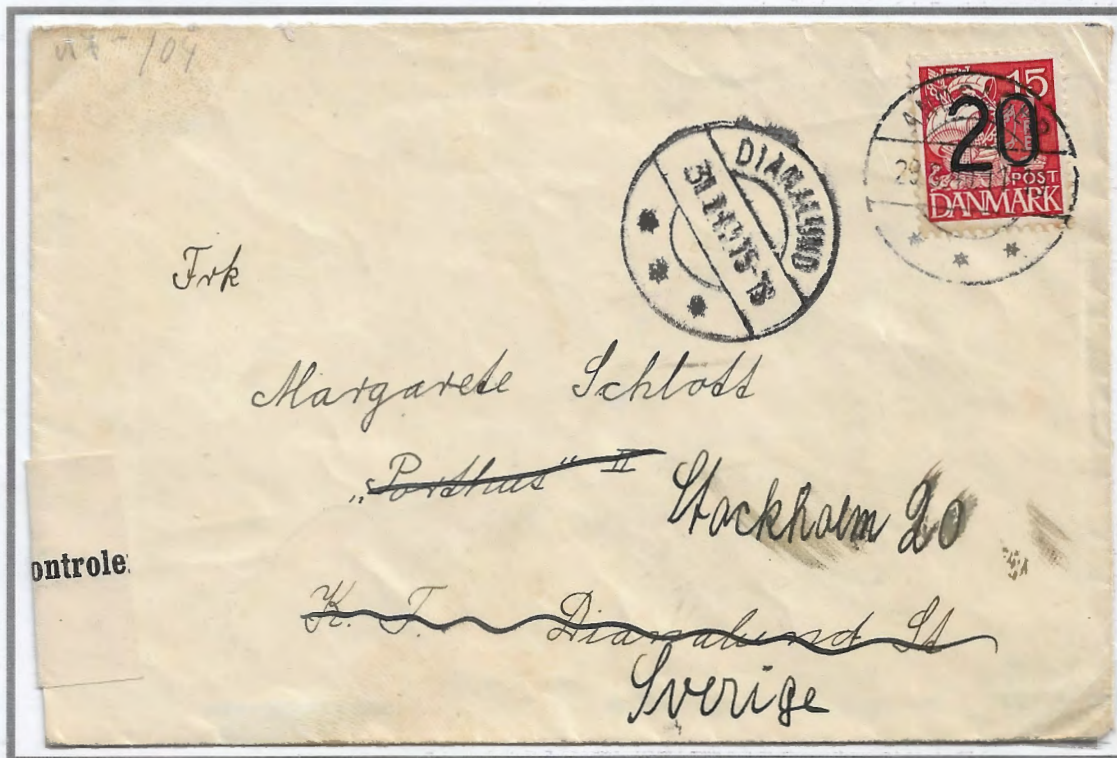 15
20
POST
DANMARK
DIANALUND
Frk
Margarete Schlott
„Porthus“ II
Stockholm 20
ontrole
K. T. Dianalund St
Sverige